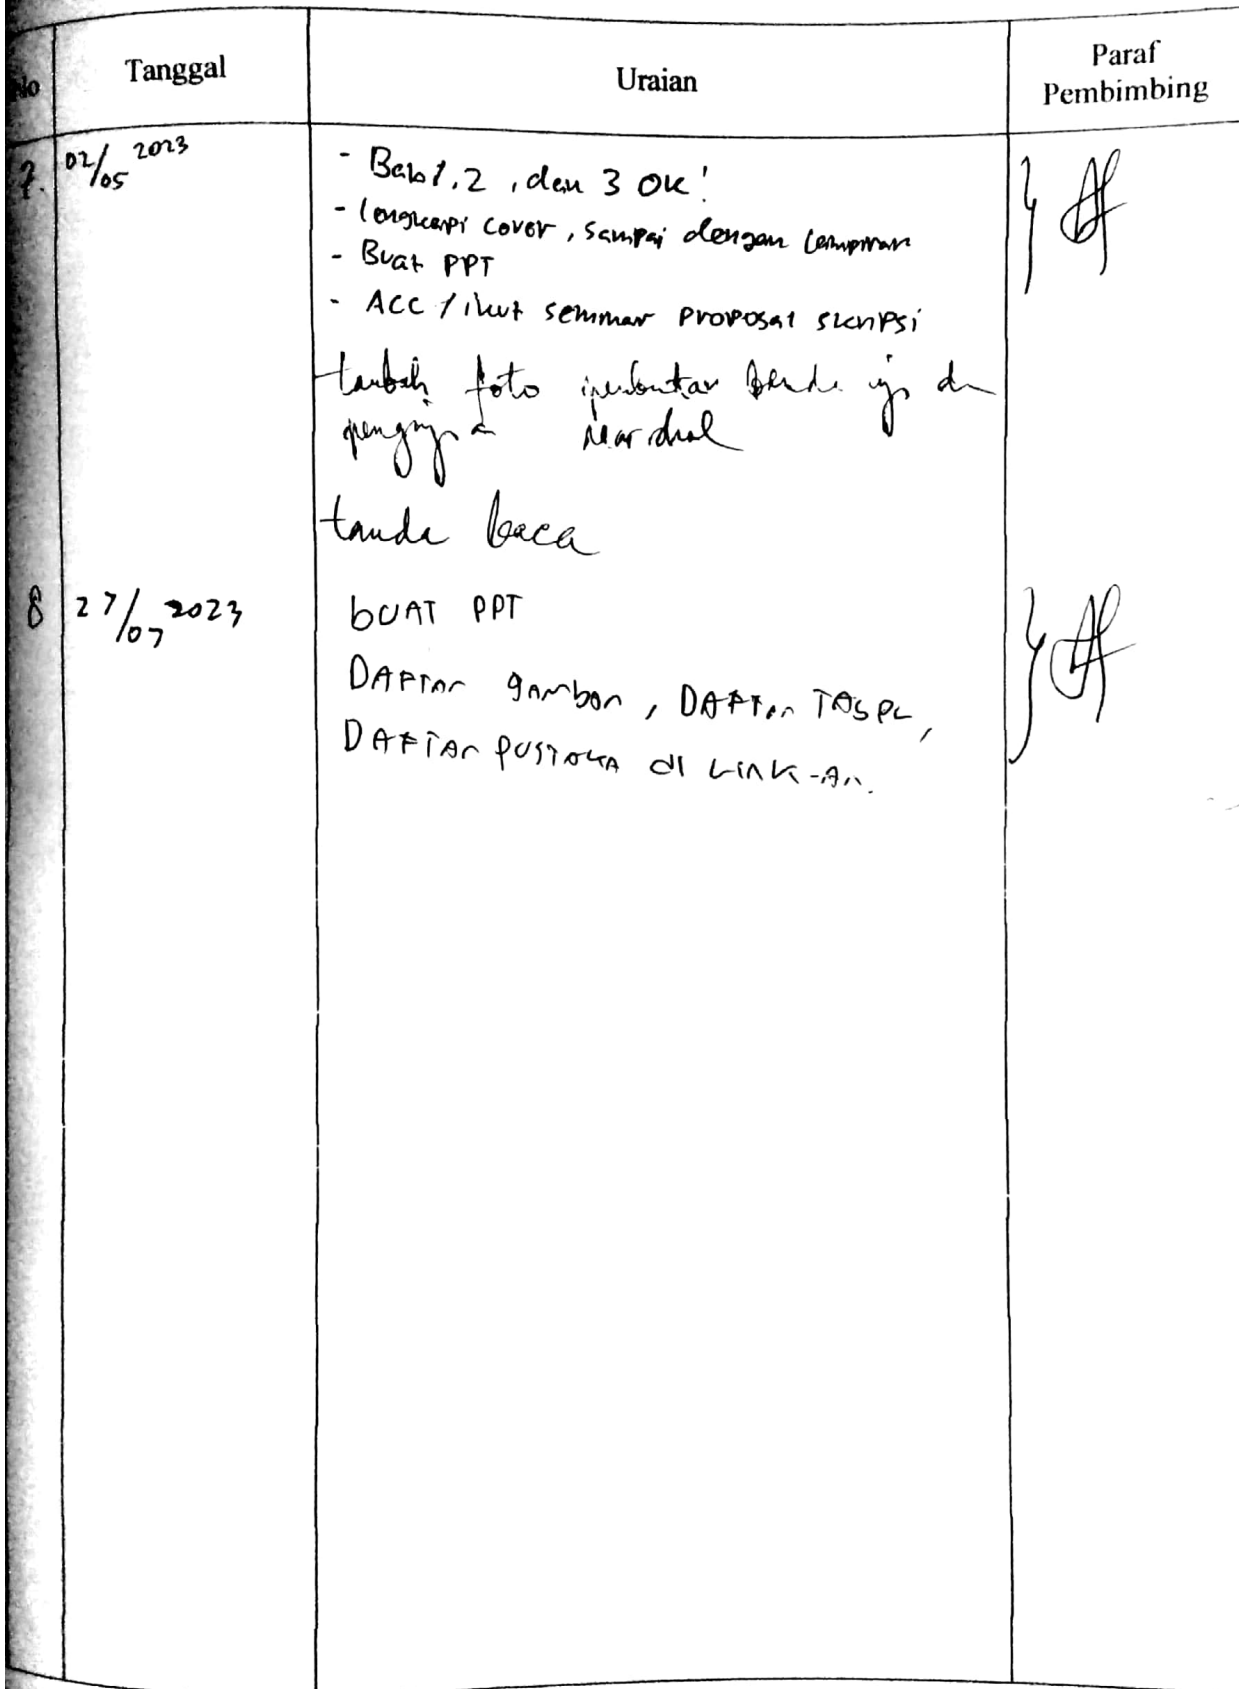 No Tanggal Uraian Paraf
Pembimbing
7. 02/05 2023 - Bab 1, 2, dan 3 OK!
- lengkapi cover, sampai dengan lampiran
- Buat PPT
- ACC / ikut seminar proposal skripsi
tambah foto pembuatan benda uji dan
pengujian Marshal
tanda baca
8 27/07 2023 BUAT PPT
DAFTAr gAmbar, DAFTAr TABEL,
DAFTAr PUSTAKA di Link-An.